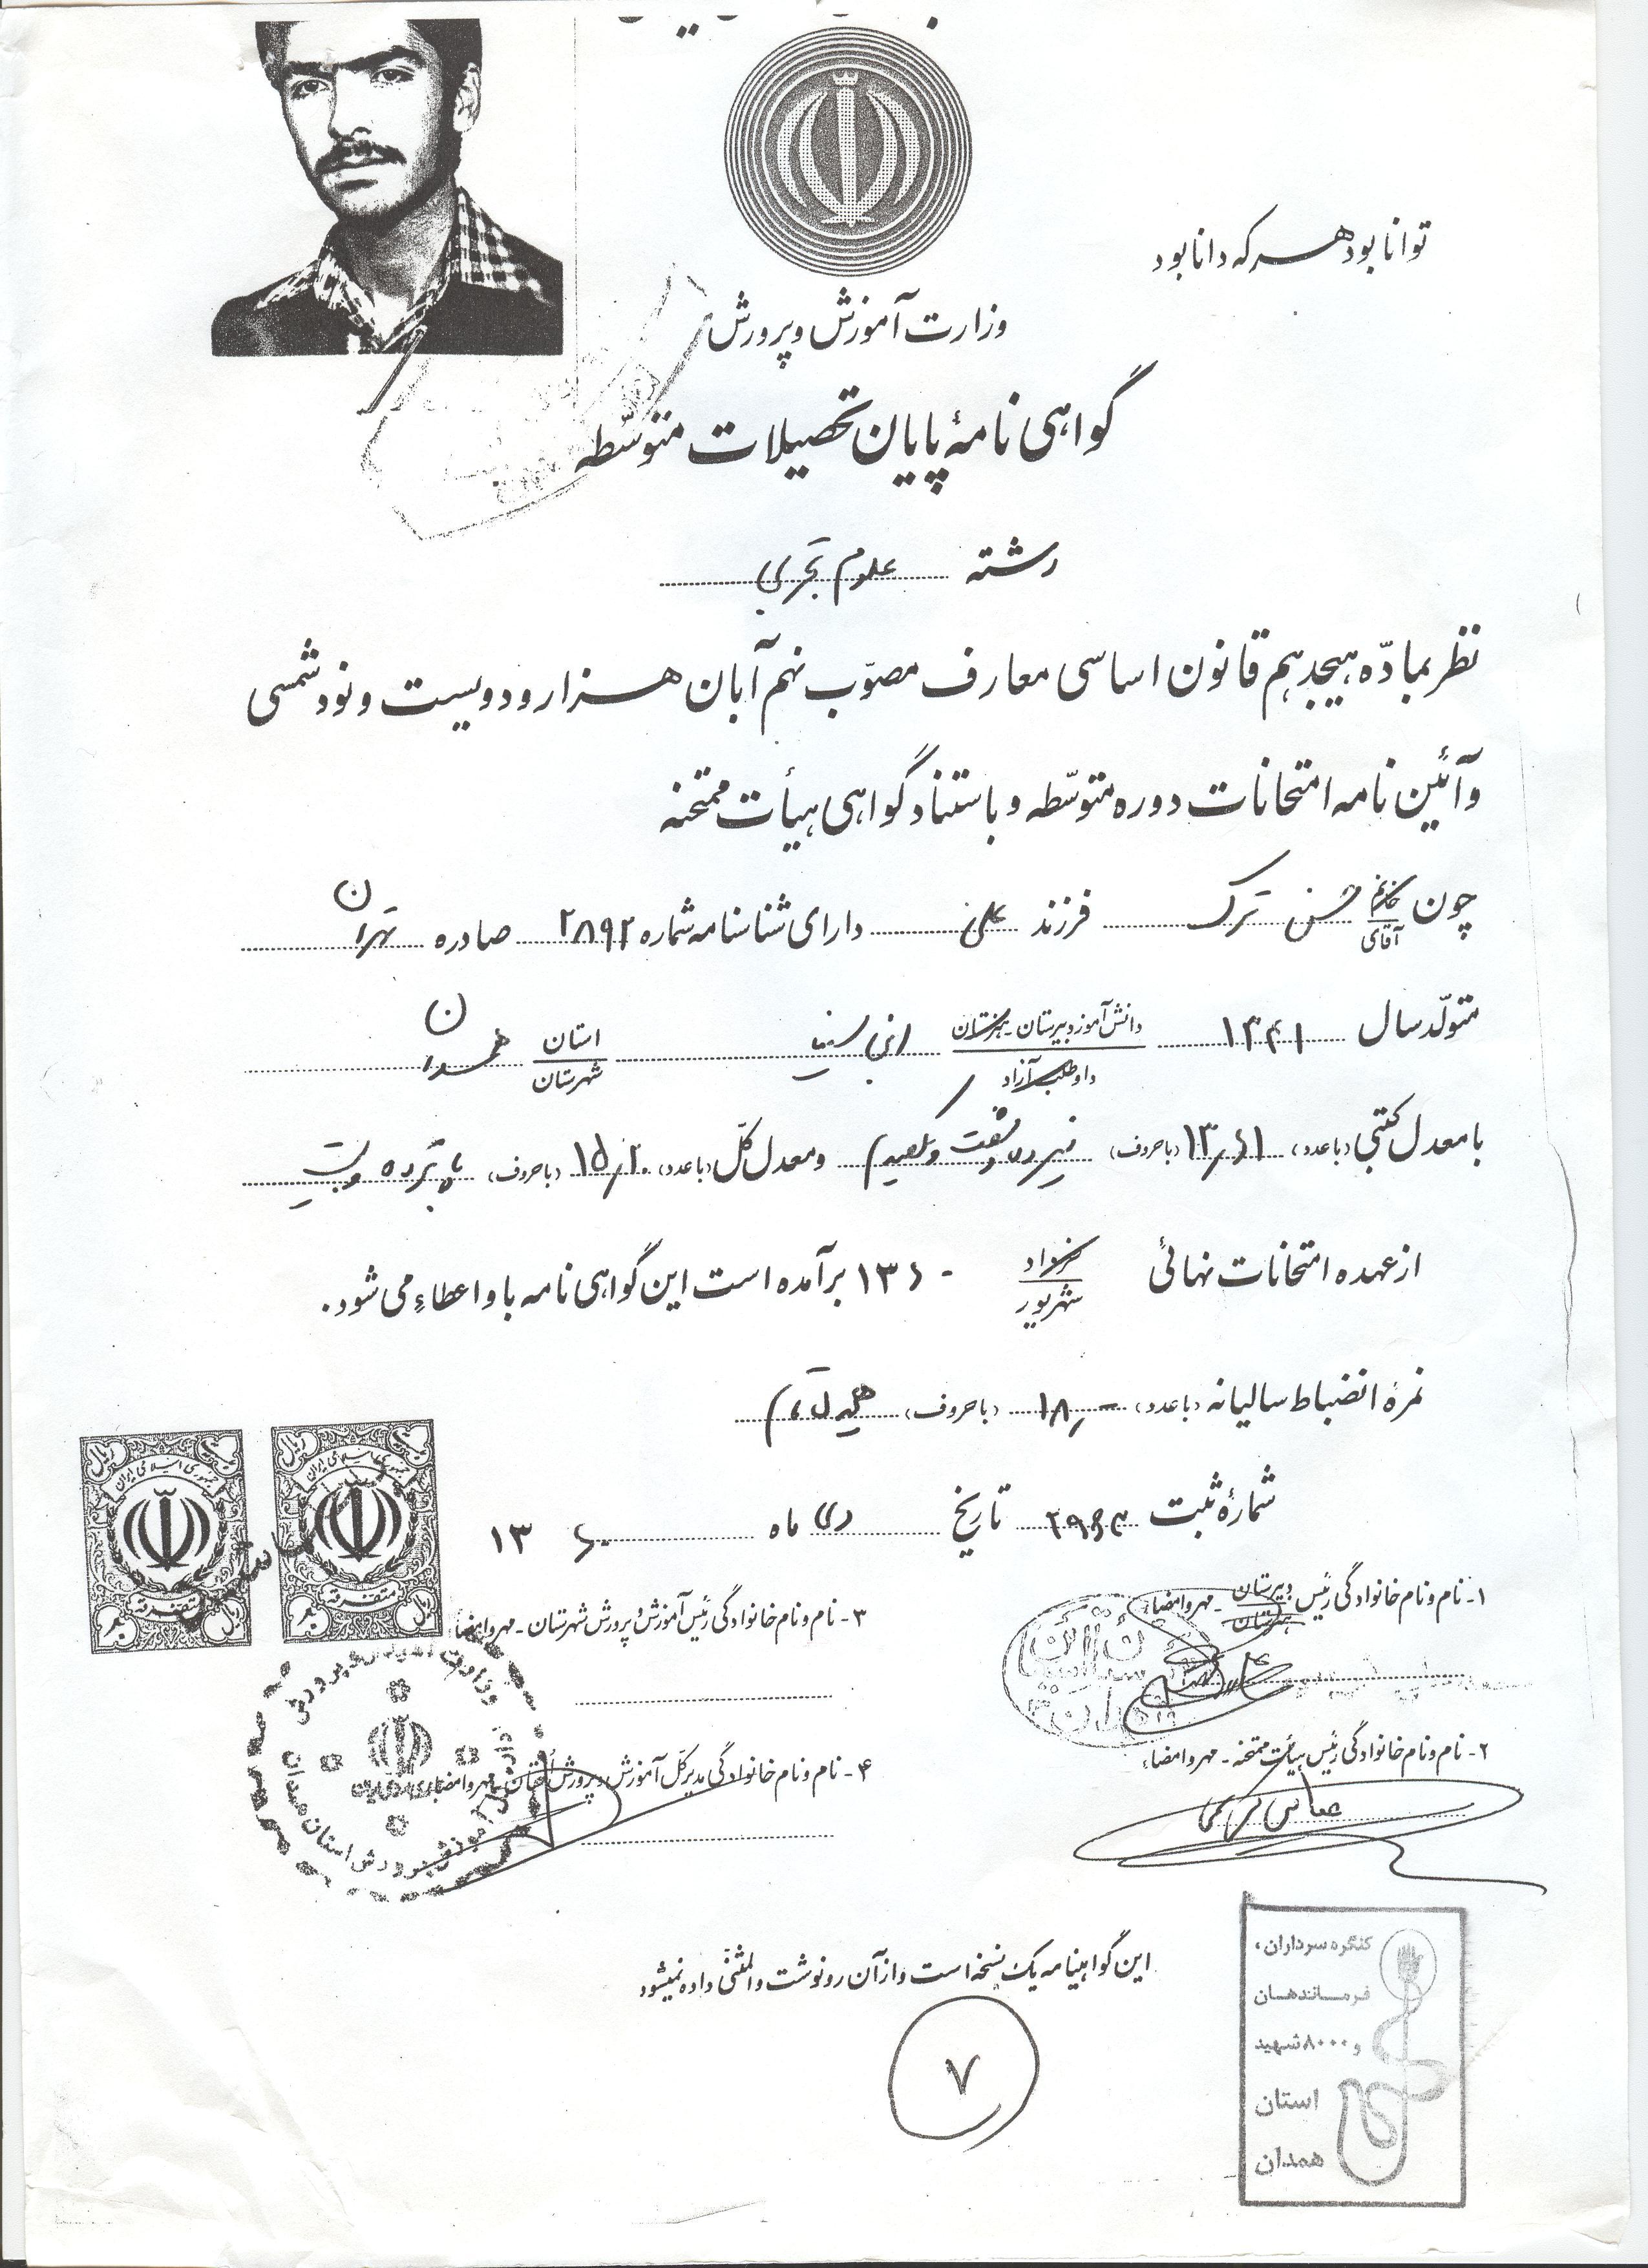 توانا بود هر که دانا بود
وزارت آموزش و پرورش
گواهی نامهٔ پایان تحصیلات متوسّطه
رشته علوم تجربی
نظر بمادّه هیجدهم قانون اساسی معارف مصوّب نهم آبان هزار و دویست و نود شمسی
و آئین نامه امتحانات دوره متوسّطه و باستناد گواهی هیأت ممتحنه
چون خانم آقای حسن ترک فرزند علی دارای شناسنامه شماره ۲۸۹۲ صادره تهران
متولّد سال ۱۳۴۱ دانش آموز دبیرستان - هنرستان داوطلب آزاد ابن سینا استان شهرستان همدان
با معدل کتبی (با عدد) ۱۳/۶۱ (با حروف) سیزده و شصت و یکصدم و معدل کلّ (با عدد) ۱۵/۲۰ (با حروف) پانزده و بیست
از عهده امتحانات نهائی خرداد شهریور ۱۳۶۰ برآمده است این گواهی نامه باو اعطاء می شود.
نمرهٔ انضباط سالیانه (با عدد) ۱۸/۰ (با حروف) هیجده تمام
شمارهٔ ثبت ۲۹۶۳ تاریخ دی ماه ۱۳۶۰
جمهوری اسلامی ایران
جمهوری اسلامی ایران
متفرقه
متفرقه
۱- نام و نام خانوادگی رئیس دبیرستان هنرستان - مهر و امضاء
۳- نام و نام خانوادگی رئیس آموزش و پرورش شهرستان - مهر و امضاء
۲- نام و نام خانوادگی رئیس هیأت ممتحنه - مهر و امضاء
۴- نام و نام خانوادگی مدیر کلّ آموزش و پرورش استان - مهر و امضاء
وزارت آموزش و پرورش
اداره کل آموزش و پرورش استان همدان
این گواهینامه یک نسخه است و از آن رونوشت و المثنّی داده نمیشود
۷
کنگره سرداران،
فرماندهان
و ۸۰۰۰ شهید
استان
همدان